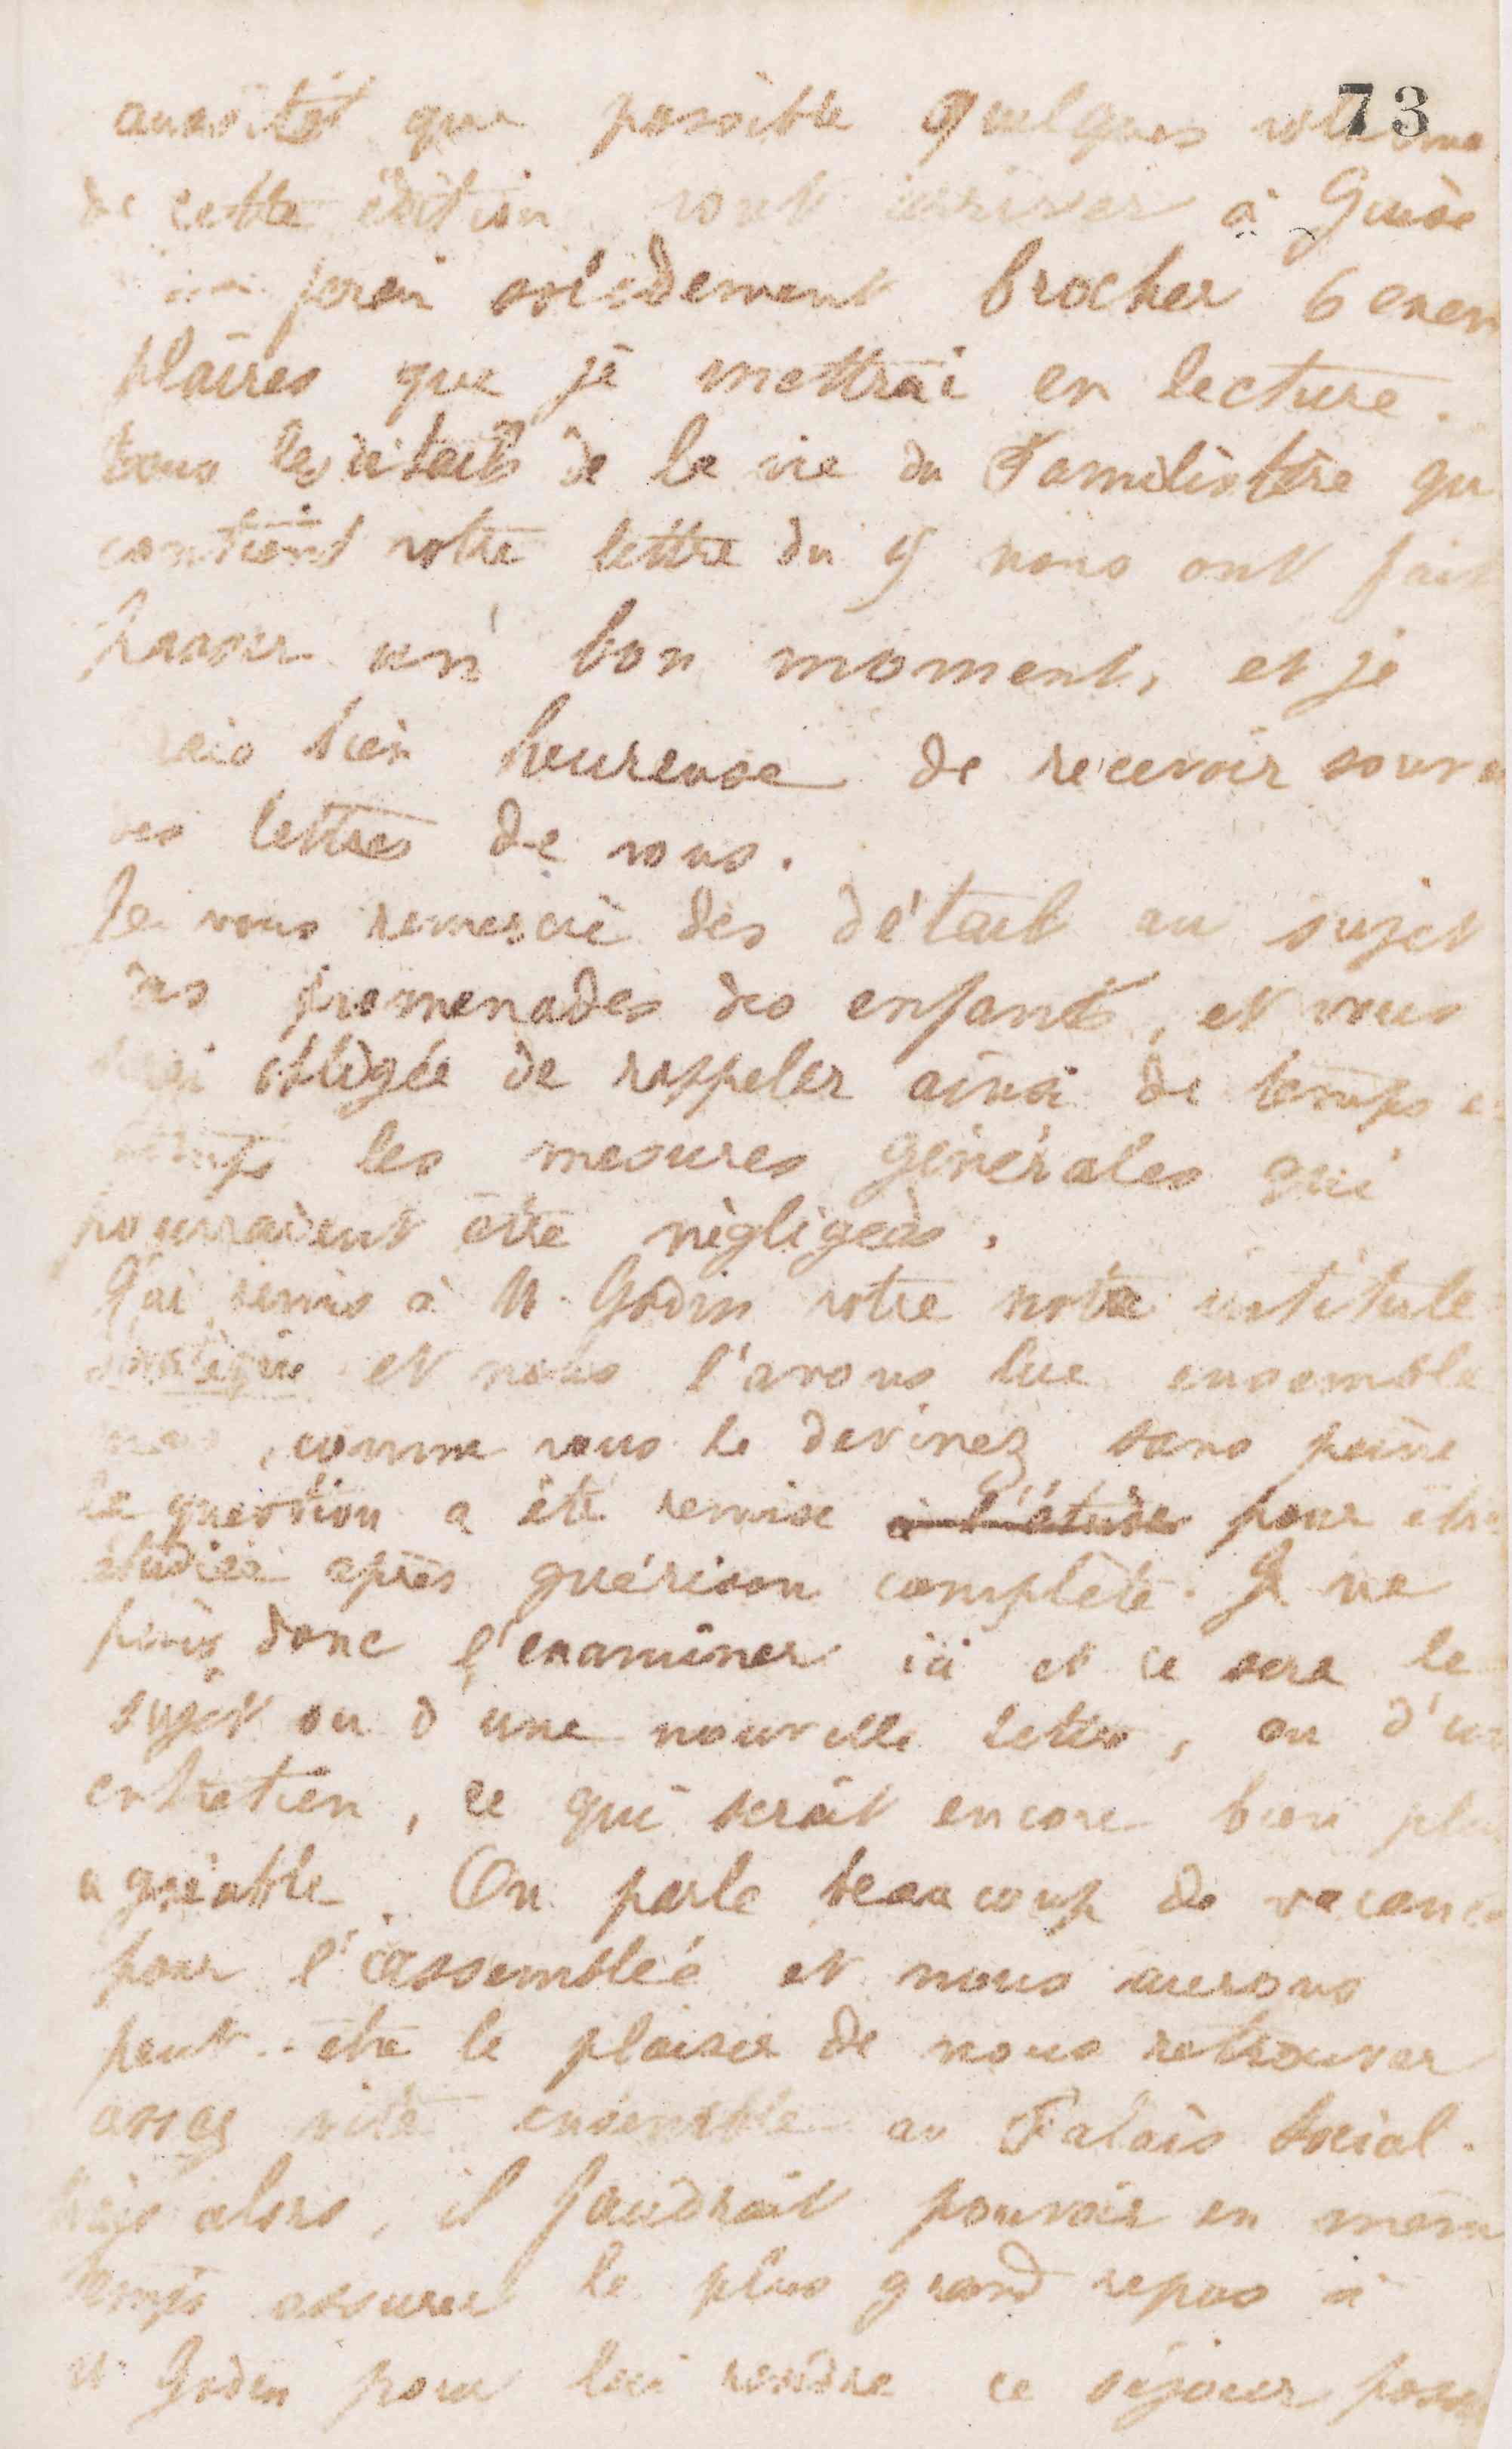 73
aussitôt que possible quelques volumes
de cette édition vont arriver à Guise
ferai évidemment brocher 6 exem
plaires que je mettrai en lecture.
Tous les détails de la vie du Familistère qu
contient votre lettre du 9 nous ont fait
passer un bon moment, et je
bien heureuse de recevoir souve
des lettres de vous.
Je vous remercie des détails au sujet
des promenades des enfants, et vous
serai obligée de rappeler ainsi de temps e
temps les mesures générales qui
pourraient être négligées.
J'ai remis à M. Godin votre note intitulé
et nous l'avons lue ensemble
mais, comme vous le devinez sans peine
la question a été remise à l'étude pour être
étudiée après guérison complète. Je ne
puis donc l'examiner ici et ce sera le
sujet ou d'une nouvelle lettre, ou d'un
entretien, ce qui serait encore bien plus
agréable. On parle beaucoup de vacances
pour l'assemblée et nous aurons
peut-être le plaisir de nous retrouver
assez vite ensemble au Palais Social.
Mais alors, il faudrait pouvoir en même
temps assurer le plus grand repos à
M Godin pour lui rendre ce séjour poss